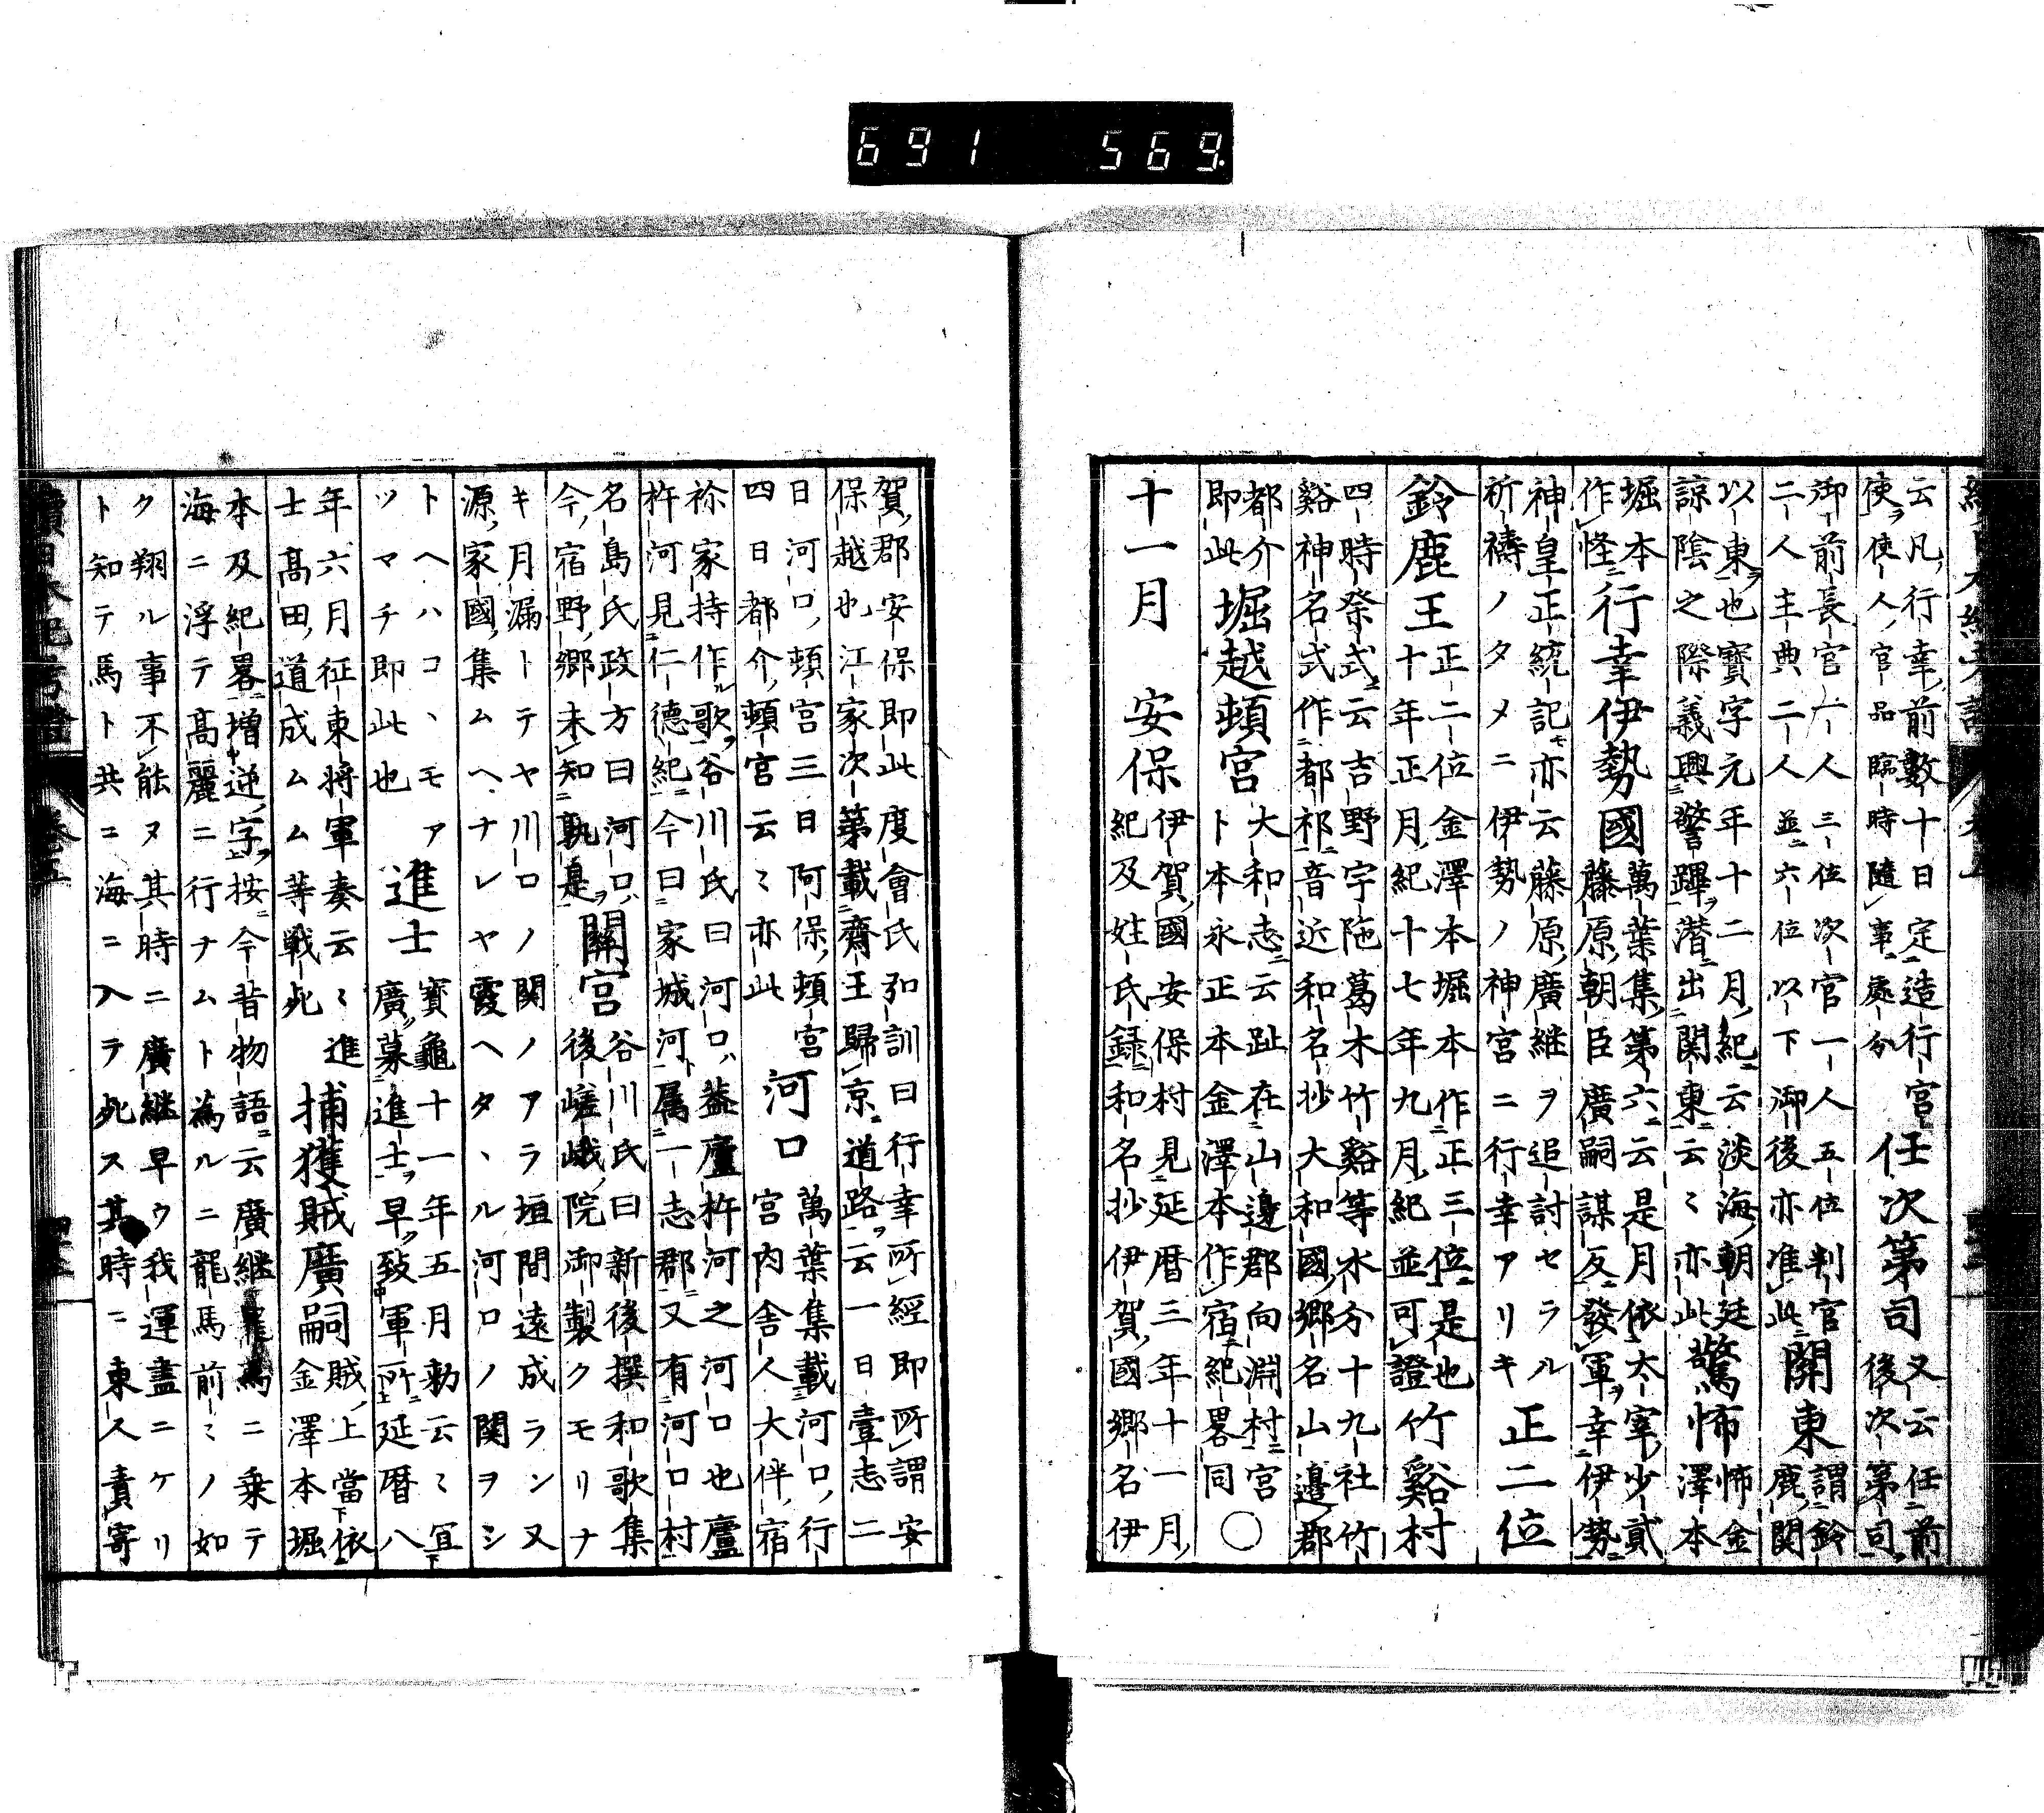 691 569.
云凡行幸前數十日定造行宮任次第司又云任前
使使人官品臨時隨事處分後次第司
御前長官一人三位次官一人五位判官關東謂鈴
二人主典二人並六位以下御後亦准此鹿関
以東也寶字元年十二月紀云淡海朝廷驚怖怖金
諒陰之際義興警蹕潜出関東云々亦此澤本
堀本行幸伊勢國萬葉集第六云是月依太宰少貳
作恠藤原朝臣廣嗣謀反發軍幸伊勢
神皇正統記亦云藤原廣継ヲ追討セラル正二位
祈禱ノタメニ伊勢ノ神宮ニ行幸アリキ
鈴鹿王正二位金澤本堀本作正三位是也竹谿村
十年正月紀十七年九月紀並可證
四時祭式云吉野宇陁葛木竹谿等水分十九社竹
谿神名式作都祁音近和名抄大和國郷名山邉郡
都介堀越頓宮大和志云趾在山邊郡向淵村宮
即此ト本永正本金澤本作宿紀畧同〇
十一月 安保伊賀國安保村見延暦三年十一月
紀及姓氏録和名抄伊賀國郷名伊
賀郡安保即此度會氏弘訓曰行幸所經即所謂安
保越也江家次第載齋王歸京道路云一日壹志二
日河口頓宮三日阿保頓宮河口萬葉集載河口行
四日都介頓宮云々亦此宮内舎人大伴宿
祢家持作歌谷川氏曰河口蓋廬杵河之河口也廬
杵河見仁德紀今曰家城河属一志郡又有河口村
名島氏政方曰河口關宮谷川氏曰新後撰和歌集
今宿野郷未知孰是後嵯峨院御製クモリナ
キ月漏トテヤ川口ノ関ノアラ垣間遠成ラン又
源家國集ムヘナレヤ霞ヘタヽル河口ノ関ヲシ
トヘハコヽモア進士寶龜十一年五月勅云々宜
ツマチ即此也廣募進士早致軍所延暦八
年六月征東將軍奏云々進捕獲賊廣嗣賊上當依
士髙田道成ムム等戦死金澤本堀
本及紀畧増逆字按今昔物語云廣継龍馬ニ乗テ
海ニ浮テ髙麗ニ行ナムト為ルニ龍馬前々ノ如
ク翔ル事不能ヌ其時ニ廣継早ウ我運盡ニケリ
ト知テ馬ト共ニ海ニ入テ死ス其時ニ東人責寄